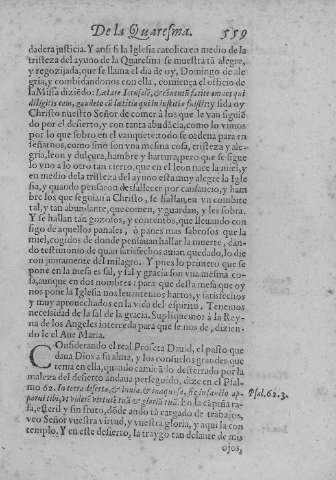 De la Quaresma. 559
dadera justicia. Y ansi si la Iglesia catolica en medio de la
tristeza del ayuno de la Quaresma se muestra tā alegre,
y regozijada, que se llama el dia de oy, Domingo de ale-
gria, y combidandonos con ella, comiença el officio de
la Missa diziēdo: Lætare Ierusalē, & cōuentū facite omnes qui
diligitis eam, gaudete cū lætitia qui in tristitia fuistis; y sida oy
Christo nuestro Señor de comer à los que le van siguiē
do por el desierto, y con tanta abūdācia, como lo vimos
por lo que sobro en el vanquete: todo se ordena para en
señarnos, como sino son vna mesma cosa, tristeza y ale-
gria, leon y dulçura, hambre y hartura; pero que se sigue
lo vno a lo otro tan cierto, que en el leon nace la miel, y
en medio dela tristeza del ayuno està muy alegre la Igle
sia, y quando pensaron desfallecer por cansancio, y ham
bre los que seguian a Christo, se hallan, en vn combite
tal, y tan abundante, que comen, y guardan, y les sobra.
Y se hallan tan gozosos, y contentos, que lleuando con
sigo de aquellos panales, ò panes mas sabrosos que la
miel, cogidos de donde pensauan hallar la muerte, dan-
do testimonio de quan satisfechos auian quedado, lo die
ron juntamente del milagro. Y pues lo primero que se
pone en la mesa es sal, y sal y gracia son vna mesma co-
sa, aunque en dos nombres: para que desta mesa que oy
nos pone la Iglesia nos leuantemos hartos, y satisfechos
y muy aprouechados en la vida del espiritu. Tenemos
necessidad de la sal de la gracia. Supliquemos à la Rey-
na de los Angeles interceda para que se nos de, dizien-
do le el Aue Maria.
COnsiderando el real Profeta Dauid, el pasto que
daua Dios a su alma, y los consuelos grandes que
tenia en ella, quando camināa do desterrado por la
maleza del desierto andaua perseguido, dize en el Psal-
mo 62. In terra deserta, & inuia, & inaquosa, sic in sancto ap-
parui tibi, vt viderē virtutē tuā & gloriā tuā. En la cāpiña ra-
sa, esteril y sin fruto, dōde ando tā cargado de trabajos,
veo Señor vuestra virtud, y vuestra gloria, y aqui la con
templo. Y en este desierto, la traygo tan delante de mis
ojos,
Psal. 62. 3.